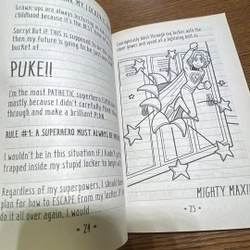 Grown-ups are always lecturing
childhood because it's the
Sorry! But if THIS is suppose
then my future's going to be
bucket of...
PUKE!!
I'm the most PATHETIC superhero EVER
mostly because I didn't carefully think
through and make a brilliant PLAN.
RULE #1: A SUPERHERO MUST ALWAYS
I wouldn't be in this situation if I hadn't
trapped inside my stupid locker to begin
Regardless of my superpowers, I should
plan for how to ESCAPE from my locker. If
do it all over again, I would
24
Courageously blast through my locker with the
power and speed of a lightning bolt as...
MIGHTY MAX!!
25